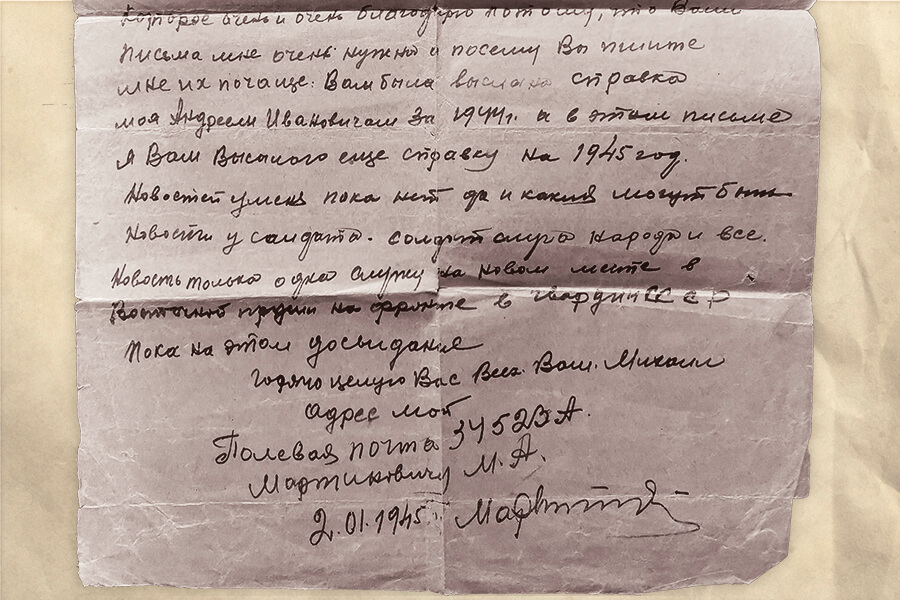 которое очень и очень благодарю потому, что Ваши
Письма мне очень нужны и посему Вы пишите
мне их почаще. Вам была выслана справка
моя Андреем Ивановичем за 1944г. а в этом письме
я Вам Высылаю еще справку на 1945 год.
Новостей у меня пока нет да и какия могут быть
Новости у салдата. солдат слуга народа и все.
Новость только одна служу на новом месте в
Восточной прусии на фронте в гвардии СССР
Пока на этом досвидания
целую Вас Всех. Ваш. Михаил
Адрес мой
Полевая почта 34523 А.
Мартиновичу М. А.
2.01.1945.